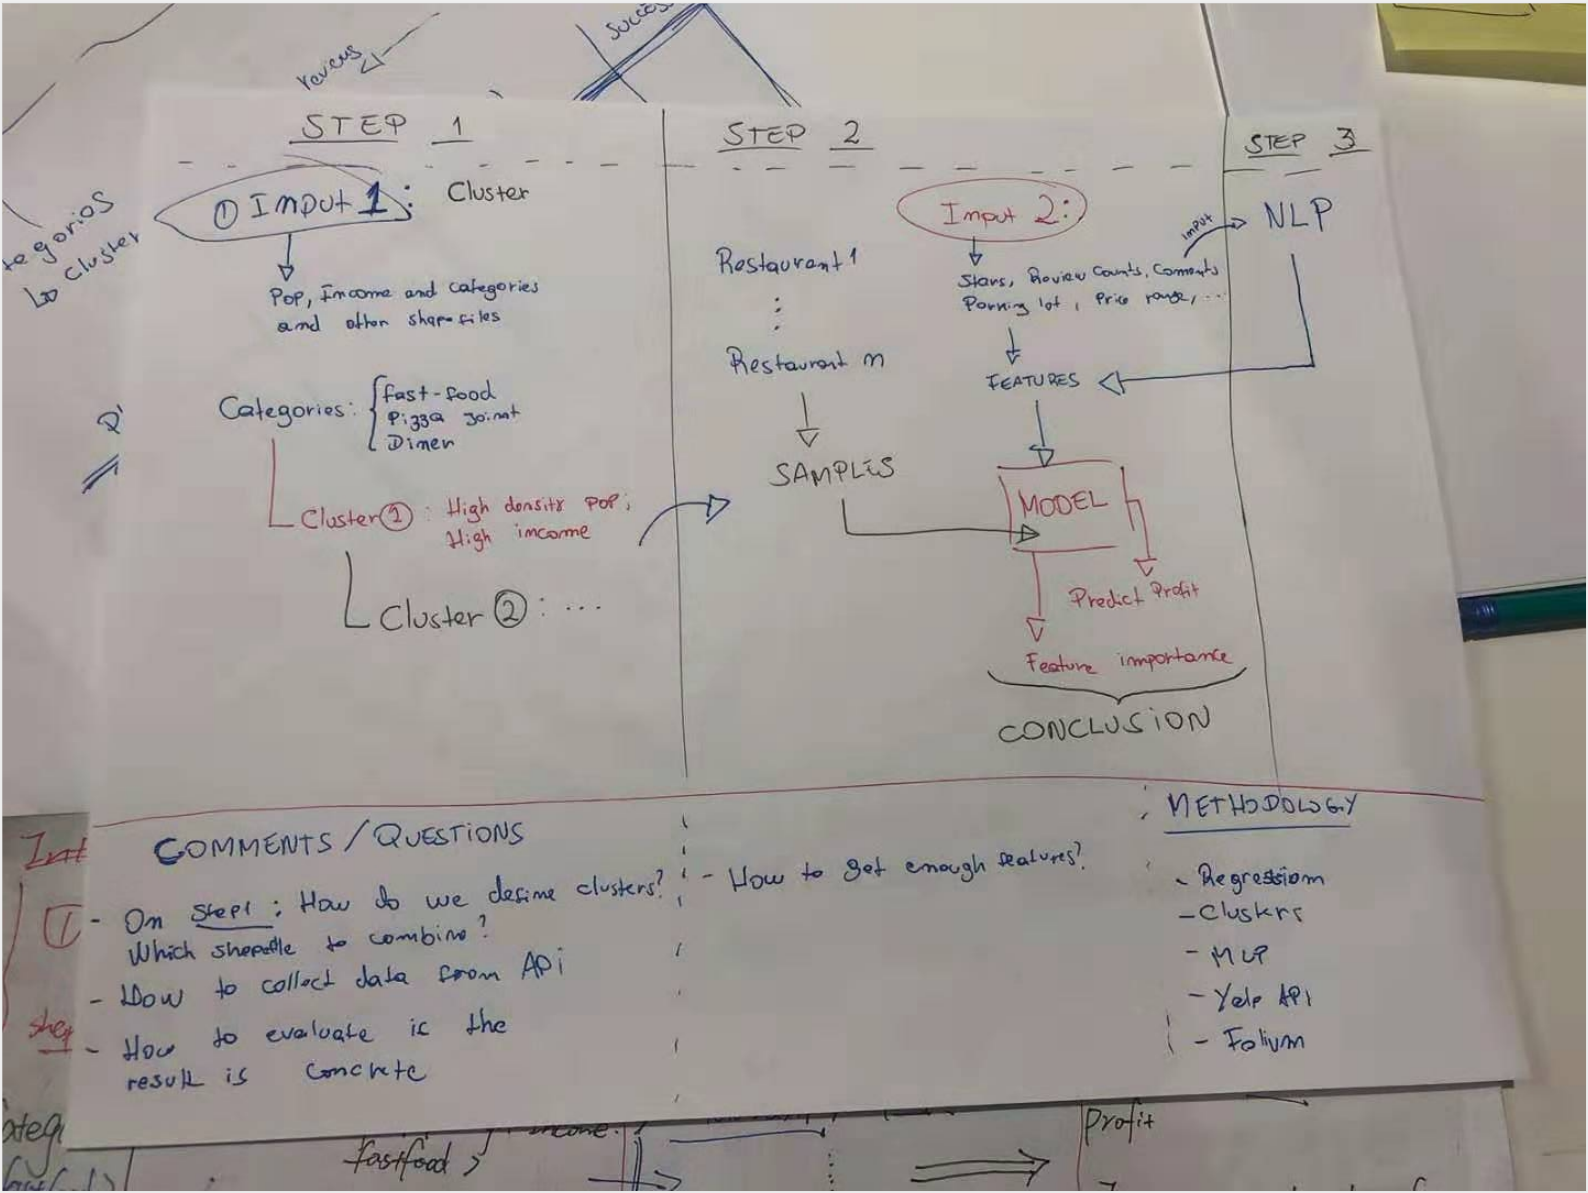 revews
STEP 1
① Input 1: Cluster
Pop, Income and categories
and other shapefiles
Categories: fast-food
Pizza Joint
Diner
Cluster ① : High density pop;
High income
Cluster ② : ...
STEP 2
Restaurant 1
Restaurant n
SAMPLES
Input 2:
Stars, Review Counts, Coments
Parking lot, Price range, ...
FEATURES
MODEL
Predict Profit
Feature importance
CONCLUSION
STEP 3
input
NLP
tegorios
Cluster
COMMENTS / QUESTIONS
- On Step1 : How do we define clusters?
Which shapefile to combine?
- How to collect data from APi
- How to evaluate is the
result is concrete
- How to get enough features?
METHODOLOGY
- Regression
- Clusters
- NLP
- Yelp API
- Folium
Int
①
fastfood
income
Profit